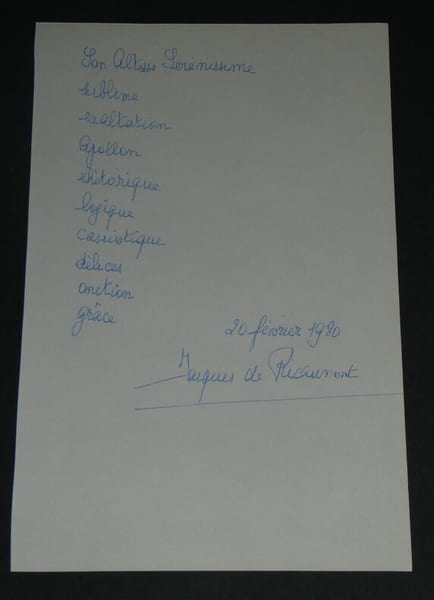 Son Altesse Sérénissime
sublime
exaltation
Apollon
rhétorique
logique
casuistique
délices
onction
grâce
20 février 1980
Jacques de Ricaumont